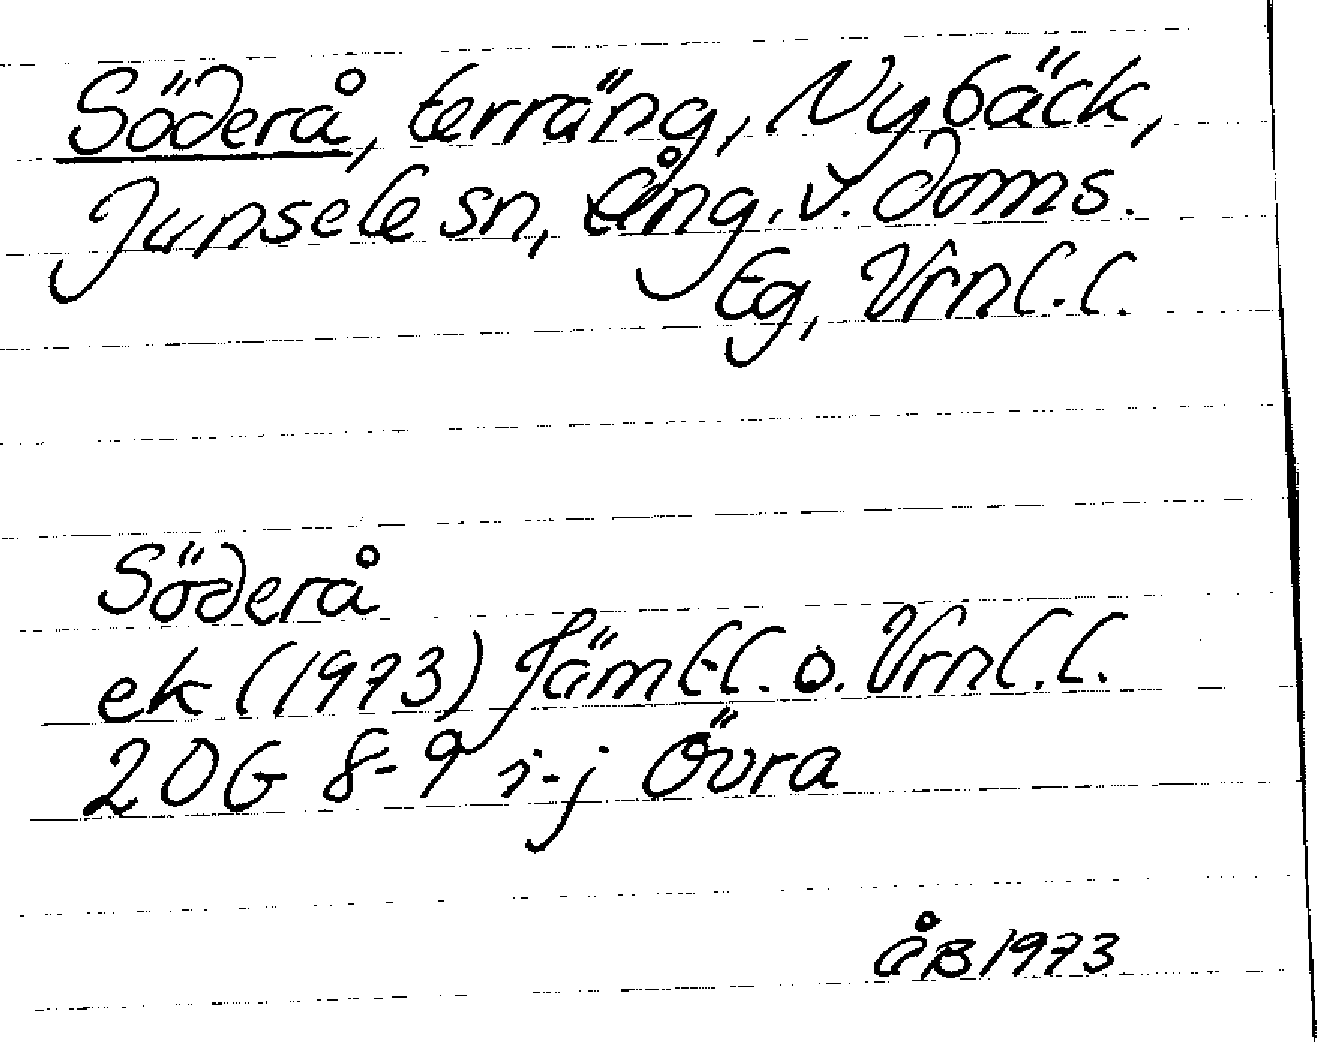 Söderå, terräng, Nybäck,
Junsele sn, Ång. v. doms.
Eg, Vrnl.l.
Söderå
ek (1973) Jämtl. o. Vrnl.l.
20G 8-9 i-j Övra
ÅB 1973